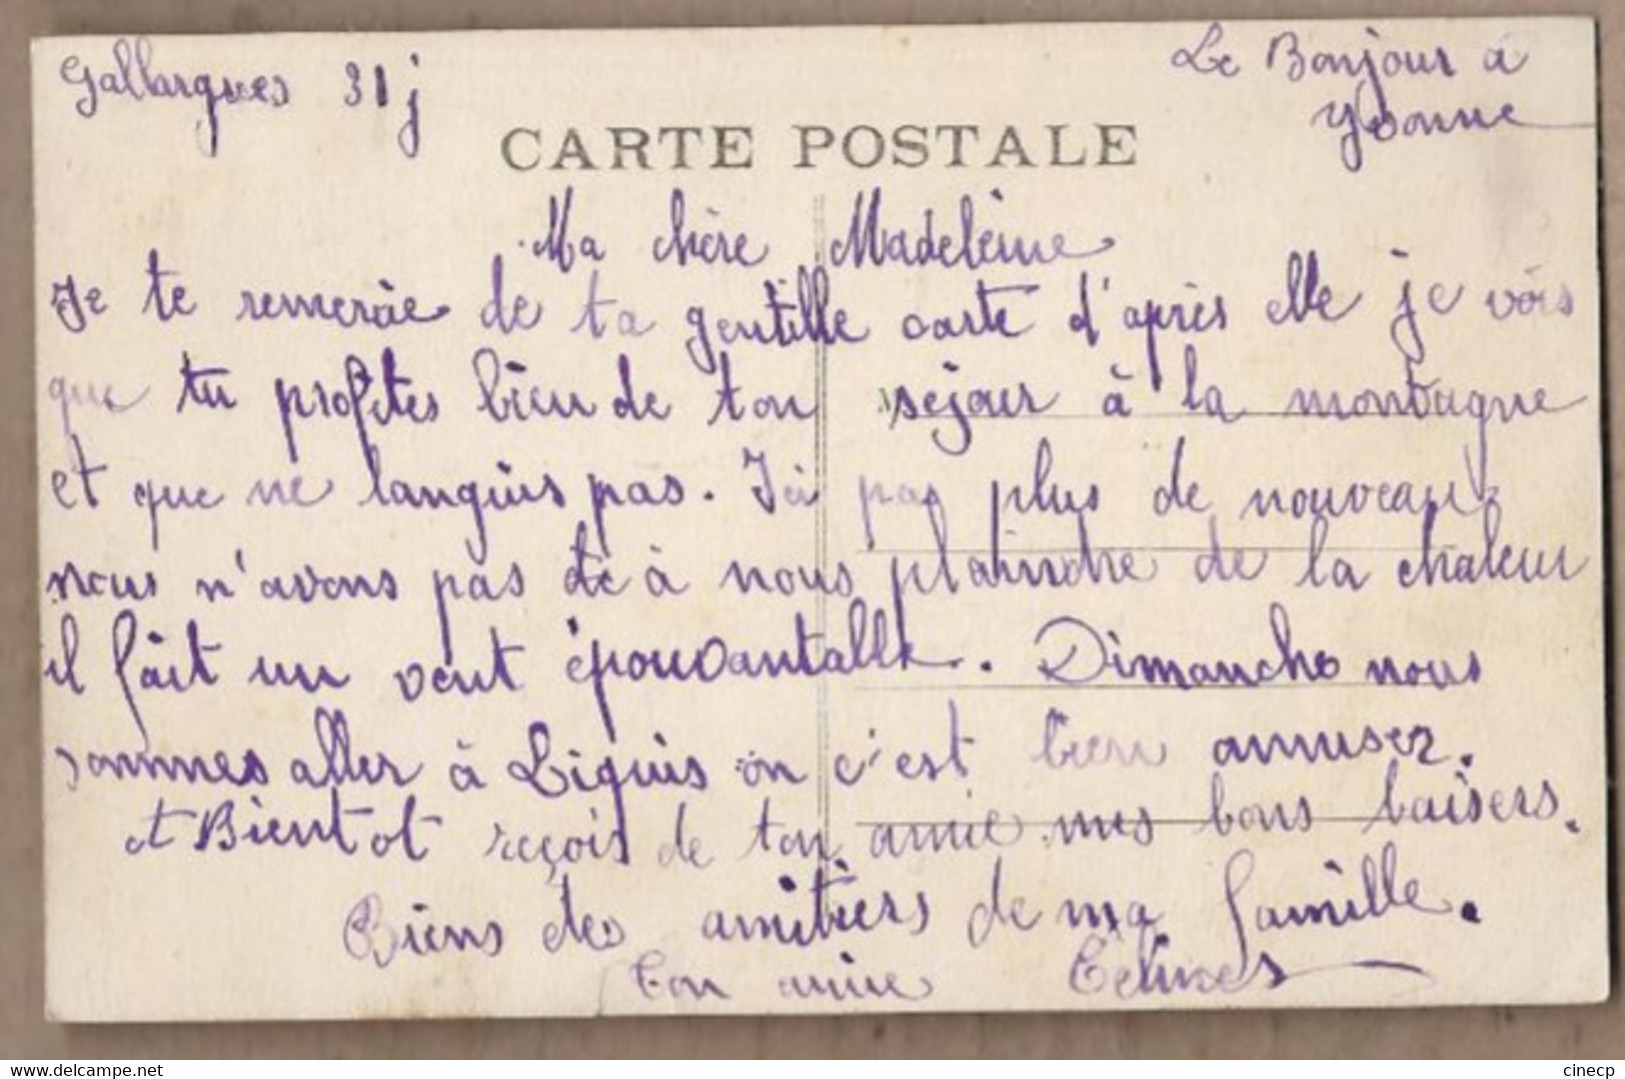 Gallargues 31 j
Le Bonjour à
Yvonne
CARTE POSTALE
Ma chère Madeleine
Je te remercie de ta gentille carte d'après elle je vois
que tu profites bien de ton séjour à la montagne
et que ne languis pas. Ici pas plus de nouveau
nous n'avons pas de à nous plaindre de la chaleur
il fait un vent épouvantable. Dimanche nous
sommes aller à Liquis on c'est bien amuser.
et Bientot reçois de ton amie mes bons baisers.
Biens des amitiers de ma famille.
Ton amie
delcampe.net
cinecp